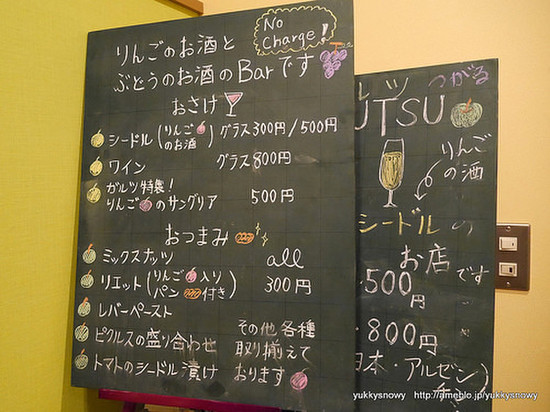 No
Charge!
りんごのお酒と
ぶどうのお酒のBarです
おさけ
シードル(りんごのお酒) グラス300円/500円
ワイン グラス800円
ガルツ特製!
りんごのサングリア 500円
おつまみ
ミックスナッツ all
リエット(りんご入り 300円
パン付き)
レバーペースト
ピクルスの盛り合わせ その他各種
取り揃えて
トマトのシードル漬け おります
ルツ つがる
UTSU
りんご
の酒
シードルの
お店です
500円
800円
日本・アルゼン
yukkysnowy http://ameblo.jp/yukkysnowy